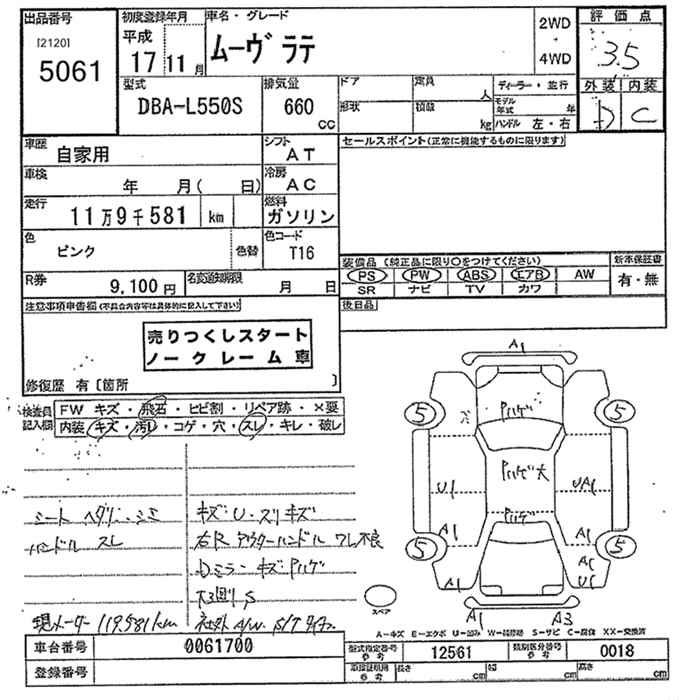 出品番号 初度登録年月 車名・グレード 2WD ・ 4WD 評価点
[2120] 5061 平成 17 11月 ムーヴ ラテ 3.5
型式 排気量 ドア 定員 人 ディーラー・並行 外装 内装
DBA-L550S 660 cc 形状 積載 kg モデル年式 年 ハンドル 左・右 D C
車歴 自家用 シフト AT セールスポイント(正常に機能するものに限ります)
車検 年 月( 日) 冷房 AC
走行 11万9千581 km 燃料 ガソリン
色 ピンク 色替 色コード T16
装備品(純正品に限り○をつけてください) 新車保証書
PS PW ABS エアB AW 有・無
SR ナビ TV カワ
R券 9,100円 名変通知期限 月 日
注意事項申告欄(不具合内容等は具体的に記入して下さい) 後日品
売りつくしスタート
ノークレーム車
修復歴 有〔箇所 〕
検査員記入欄 FW キズ・飛石・ヒビ割・リペア跡・×要
内装・キズ・汚レ・コゲ・穴・スレ・キレ・破レ
シート ヘタリ・シミ キズ・U・スリキズ
ハンドル スレ 右R アウターハンドル ワレ不良
Dミラー キズ Pハゲ
現メーター 119,581km 社外 A/W S/Tタイヤ
A1
5 Pハゲ 5
Pハゲ大
U1 UA1
Pハゲ
A1 A1
5 A1 A2 U1 5
A1 A3
スペア
A―キズ E―エクボ U―凹み W―補修跡 S―サビ C―腐食 XX―交換済
車台番号 0061700 型式指定番号 参考 12561 類別区分番号 参考 0018
登録番号 車検証明用 参考 長さ cm 幅 cm 高さ cm